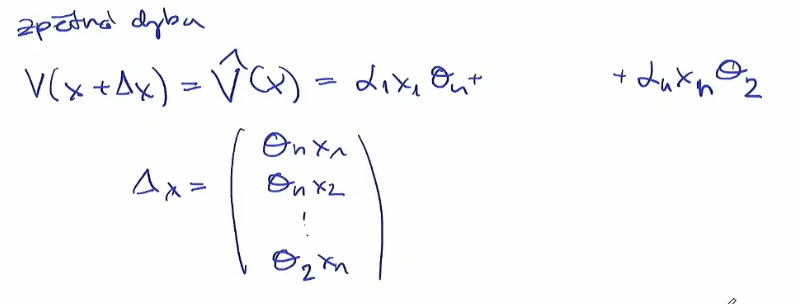 zpětná chyba
V(x+Δx) = V̂(x) = α₁x₁θₙ+ + αₙxₙθ₂
Δx = ( θₙx₁
θₙx₂
⋮
θ₂xₙ )